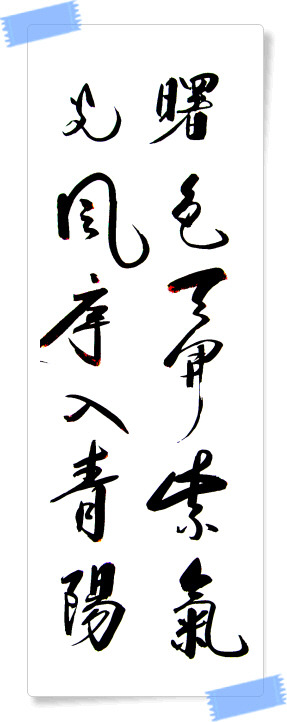 曙色天開紫氣
光風序入青陽